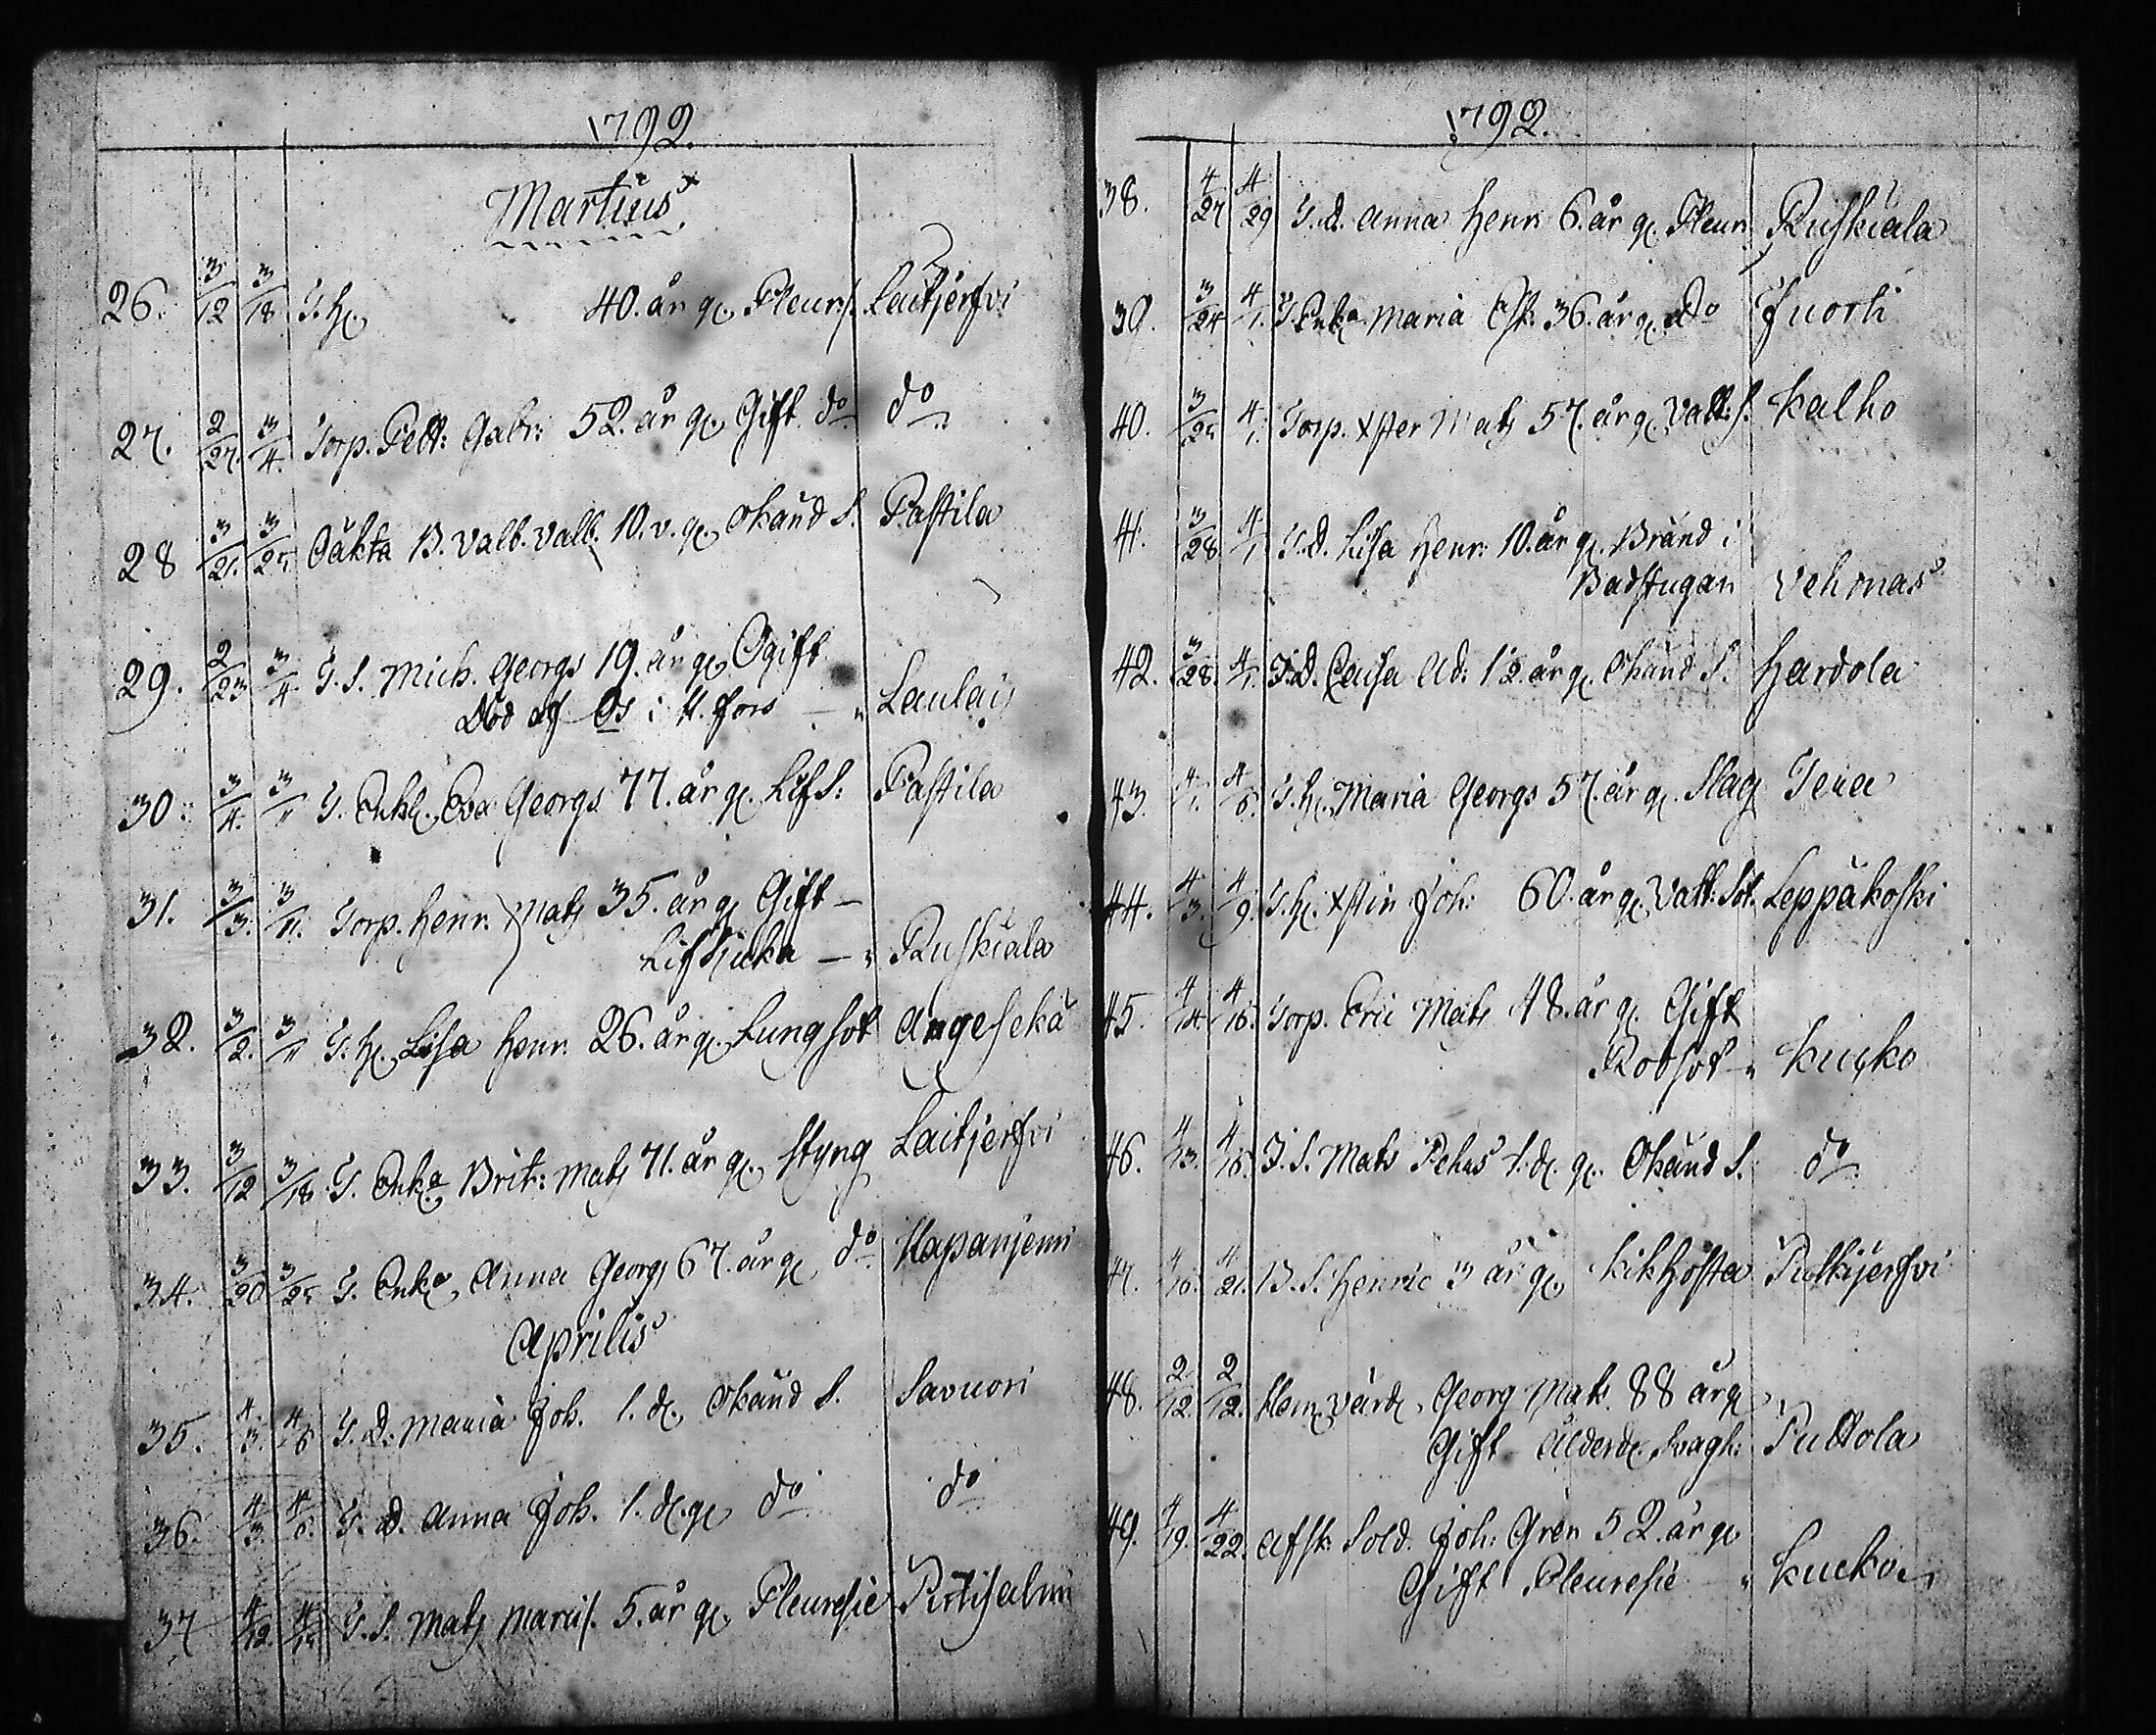 1792.
Martius
26. 3/12 3/18 T. H. 40. år g. Pleuris. Laitjerfvi
27. 2/27. 3/4. Torp. Pett: Gabr: 52. år g. Gift do do
28 3/21. 3/25. Oäkta B. Valb. Valb. 10. v. g. Okänd S. Pastila
29. 2/23 3/4 T. S. Mich. Georgs 19. år g. Ogift
Död af i H. fors — " Laulais
30. 3/4. 3/11 T. Enkl. Eva Georgs 77. år g. Lifs: Pastila
31. 3/3. 3/11. Torp. Henr. Mats 35. år g. Gift —
Lifsjuka — " Ruskiala
32. 3/2. 3/11 T. H. Lisa Henr. 26. år g. Lungsot Angesekä
33. 3/12 3/18 T. Enka Brit: Mats 71. år g. Styng Laitjerfvi
34. 3/20 3/25 T. Enka Anna Georgs 67. år g. do Hapanjemi
Aprilis
35. 4/3. 4/6 T. D. Maria Joh. 1. d. Okänd S. Savuori
36. 4/3. 4/6. T. D. Anna Joh. 1. d. g. do do
37 4/12. 4/15 T. S. Mats Marcis. 5. år g. Pleuresie Pertisalmi
1792.
38. 4/27 4/29 T. d. Anna Henr. 6. år g. Pleur. Ruskiala
39. 3/24 4/1. T. Enka Maria Esk. 36. år g. do Juorti
40. 3/25 4/1. Torp. Xster Mats 57. år g. Vatt: S. Kalho
41. 3/28. 4/1 T. D. Lisa Henr: 10. år g. Bränd i
Badstugan Vehmas
42. 3/28. 4/1. T. D. Caisa Ad: 12. år g. Okänd S. Hardola
43. 4/1. 4/6. T. H. Maria Georgs 57. år g. Slag Tena
44. 4/3. 4/9. T. H. Xstin Joh: 60. år g. Vatt: Sot. Leppäkoski
45. 4/14. 4/16. Torp. Eric Mats 48. år g. Gift
Rodsot " Kucko
46. 4/13. 4/16. T. S. Mats Pehrs 1. d. g. Okänd S. do
47. 4/16. 4/21. B. S. Henric 3 år g. Kikhosta Pulkijerfvi
48. 2/12. 2/12. Hem. värd. Georg Mats. 88 år g
Gift Ålderd. Svagh: Puttola
49. 4/19. 4/22. Afsk: Sold. Joh: Gren 52. år g
Gift Pleuresie " Kucko